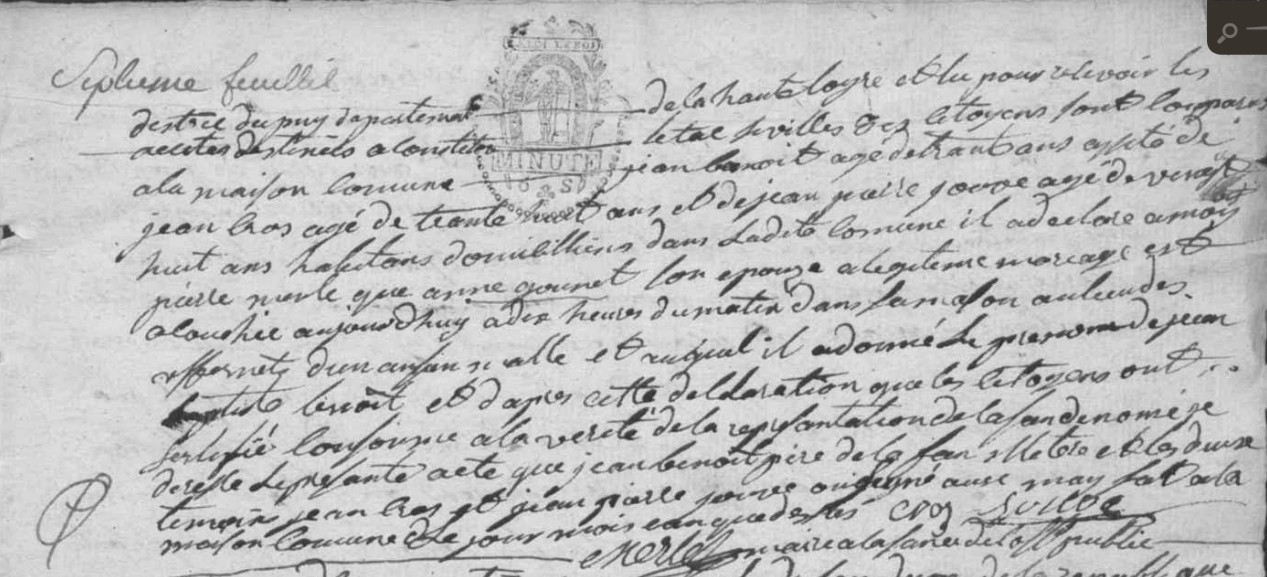 Septieme feuillet
destrée du puy departemant de la haute loyre et lu pour resevoir les
acctes destinés a constater letat sivilles des citoyens sont comparus
a la maison comune jean benoit agé de trant ans assité de
jean cros agé de trante huit ans et de jean pierre jouve agé de vengt
huit ans habitans domicilliers dans ladite comune il a declare a moy
pierre merle que anne gounet son epouze a legitime mariage est
alouchée aujourdhuy a dix heures du matin dans sa maison au lieu des
effernets dun anfan malle et auqual il a donné le prenom de jean
batiste benoit et dapres cette deldaration que les citoyens ont
sertifié confourme a la verité de la represantation de lanfan denomé je
derese le present acte que jean benoit pere de lanfan et les deux
temoins jean cros et jean pierre jouve ont signé avec moy fat a la
maison comune le jour mois ean que desus cros jouve
Merle maire a la
MINUTE